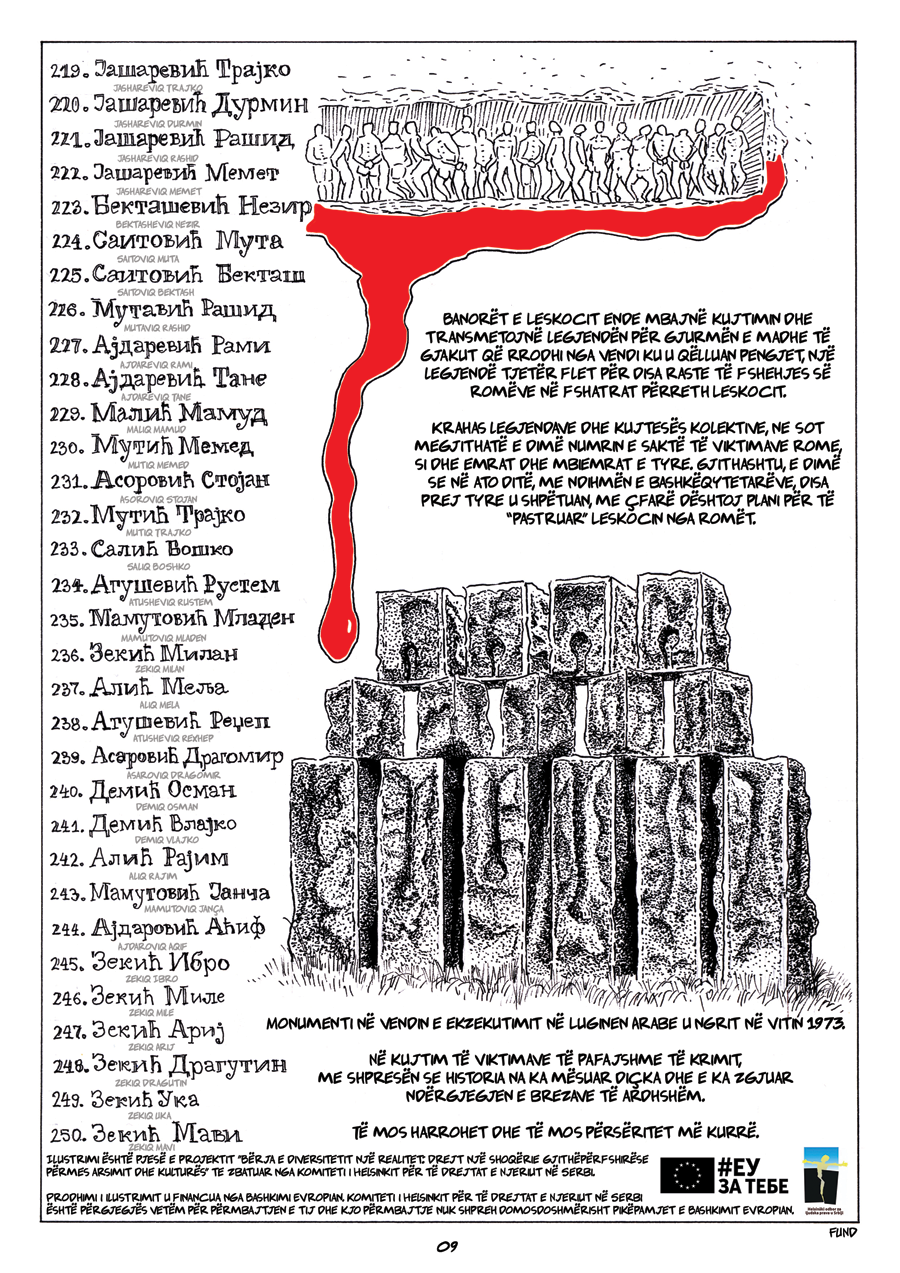 219. Јашаревић Трајко
JASHAREVIQ TRAJKO
220. Јашаревић Дурмин
JASHAREVIQ DURMIN
221. Јашаревић Рашид
JASHAREVIQ RASHID
222. Јашаревић Мемет
JASHAREVIQ MEMET
223. Бекташевић Незир
BEKTASHEVIQ NEZIR
224. Саитовић Мута
SAITOVIQ MUTA
225. Саитовић Бекташ
SAITOVIQ BEKTASH
226. Мутавић Рашид
MUTAVIQ RASHID
227. Ајдаревић Рами
AJDAREVIQ RAMI
228. Ајдаревић Тане
AJDAREVIQ TANE
229. Малић Мамуд
MALIQ MAMUD
230. Мутић Мемед
MUTIQ MEMED
231. Асоровић Стојан
ASOROVIQ STOJAN
232. Мутић Трајко
MUTIQ TRAJKO
233. Салић Бошко
SALIQ BOSHKO
234. Атушевић Рустем
ATUSHEVIQ RUSTEM
235. Мамутовић Младен
MAMUTOVIQ MLADEN
236. Зекић Милан
ZEKIQ MILAN
237. Алић Меља
ALIQ MELA
238. Атушевић Реџеп
ATUSHEVIQ REXHEP
239. Асаровић Драгомир
ASAROVIQ DRAGOMIR
240. Демић Осман
DEMIQ OSMAN
241. Демић Влајко
DEMIQ VLAJKO
242. Алић Рајим
ALIQ RAJIM
243. Мамутовић Јанча
MAMUTOVIQ JANÇA
244. Ајдаровић Аћиф
AJDAROVIQ AQIF
245. Зекић Ибро
ZEKIQ IBRO
246. Зекић Миле
ZEKIQ MILE
247. Зекић Ариј
ZEKIQ ARIJ
248. Зекић Драгутин
ZEKIQ DRAGUTIN
249. Зекић Ука
ZEKIQ UKA
250. Зекић Мави
ZEKIQ MAVI
BANORËT E LESKOCIT ENDE MBAJNË KUJTIMIN DHE
TRANSMETOJNË LEGJENDËN PËR GJURMËN E MADHE TË
GJAKUT QË RRODHI NGA VENDI KU U QËLLUAN PENGJET, NJË
LEGJENDË TJETËR FLET PËR DISA RASTE TË FSHEHJES SË
ROMËVE NË FSHATRAT PËRRETH LESKOCIT.
KRAHAS LEGJENDAVE DHE KUJTESËS KOLEKTIVE, NE SOT
MEGJITHATË E DIMË NUMRIN E SAKTË TË VIKTIMAVE ROME,
SI DHE EMRAT DHE MBIEMRAT E TYRE. GJITHASHTU, E DIMË
SE NË ATO DITË, ME NDIHMËN E BASHKËQYTETARËVE, DISA
PREJ TYRE U SHPËTUAN, ME ÇFARË DËSHTOJ PLANI PËR TË
"PASTRUAR" LESKOCIN NGA ROMËT.
MONUMENTI NË VENDIN E EKZEKUTIMIT NË LUGINEN ARABE U NGRIT NË VITIN 1973.
NË KUJTIM TË VIKTIMAVE TË PAFAJSHME TË KRIMIT,
ME SHPRESËN SE HISTORIA NA KA MËSUAR DIÇKA DHE E KA ZGJUAR
NDËRGJEGJEN E BREZAVE TË ARDHSHËM.
TË MOS HARROHET DHE TË MOS PËRSËRITET MË KURRË.
ILUSTRIMI ËSHTË PJESË E PROJEKTIT "BËRJA E DIVERSITETIT NJË REALITET: DREJT NJË SHOQËRIE GJITHËPËRFSHIRËSE
PËRMES ARSIMIT DHE KULTURËS" TE ZBATUAR NGA KOMITETI I HELSINKIT PËR TË DREJTAT E NJERIUT NË SERBI.
PRODHIMI I ILUSTRIMIT U FINANCUA NGA BASHKIMI EVROPIAN. KOMITETI I HELSINKIT PËR TË DREJTAT E NJERIUT NË SERBI
ËSHTË PËRGJEGJËS VETËM PËR PËRMBAJTJEN E TIJ DHE KJO PËRMBAJTJE NUK SHPREH DOMOSDOSHMËRISHT PIKËPAMJET E BASHKIMIT EVROPIAN.
#ЕУ
ЗА ТЕБЕ
Helsinški odbor za
ljudska prava u Srbiji
FUND
09